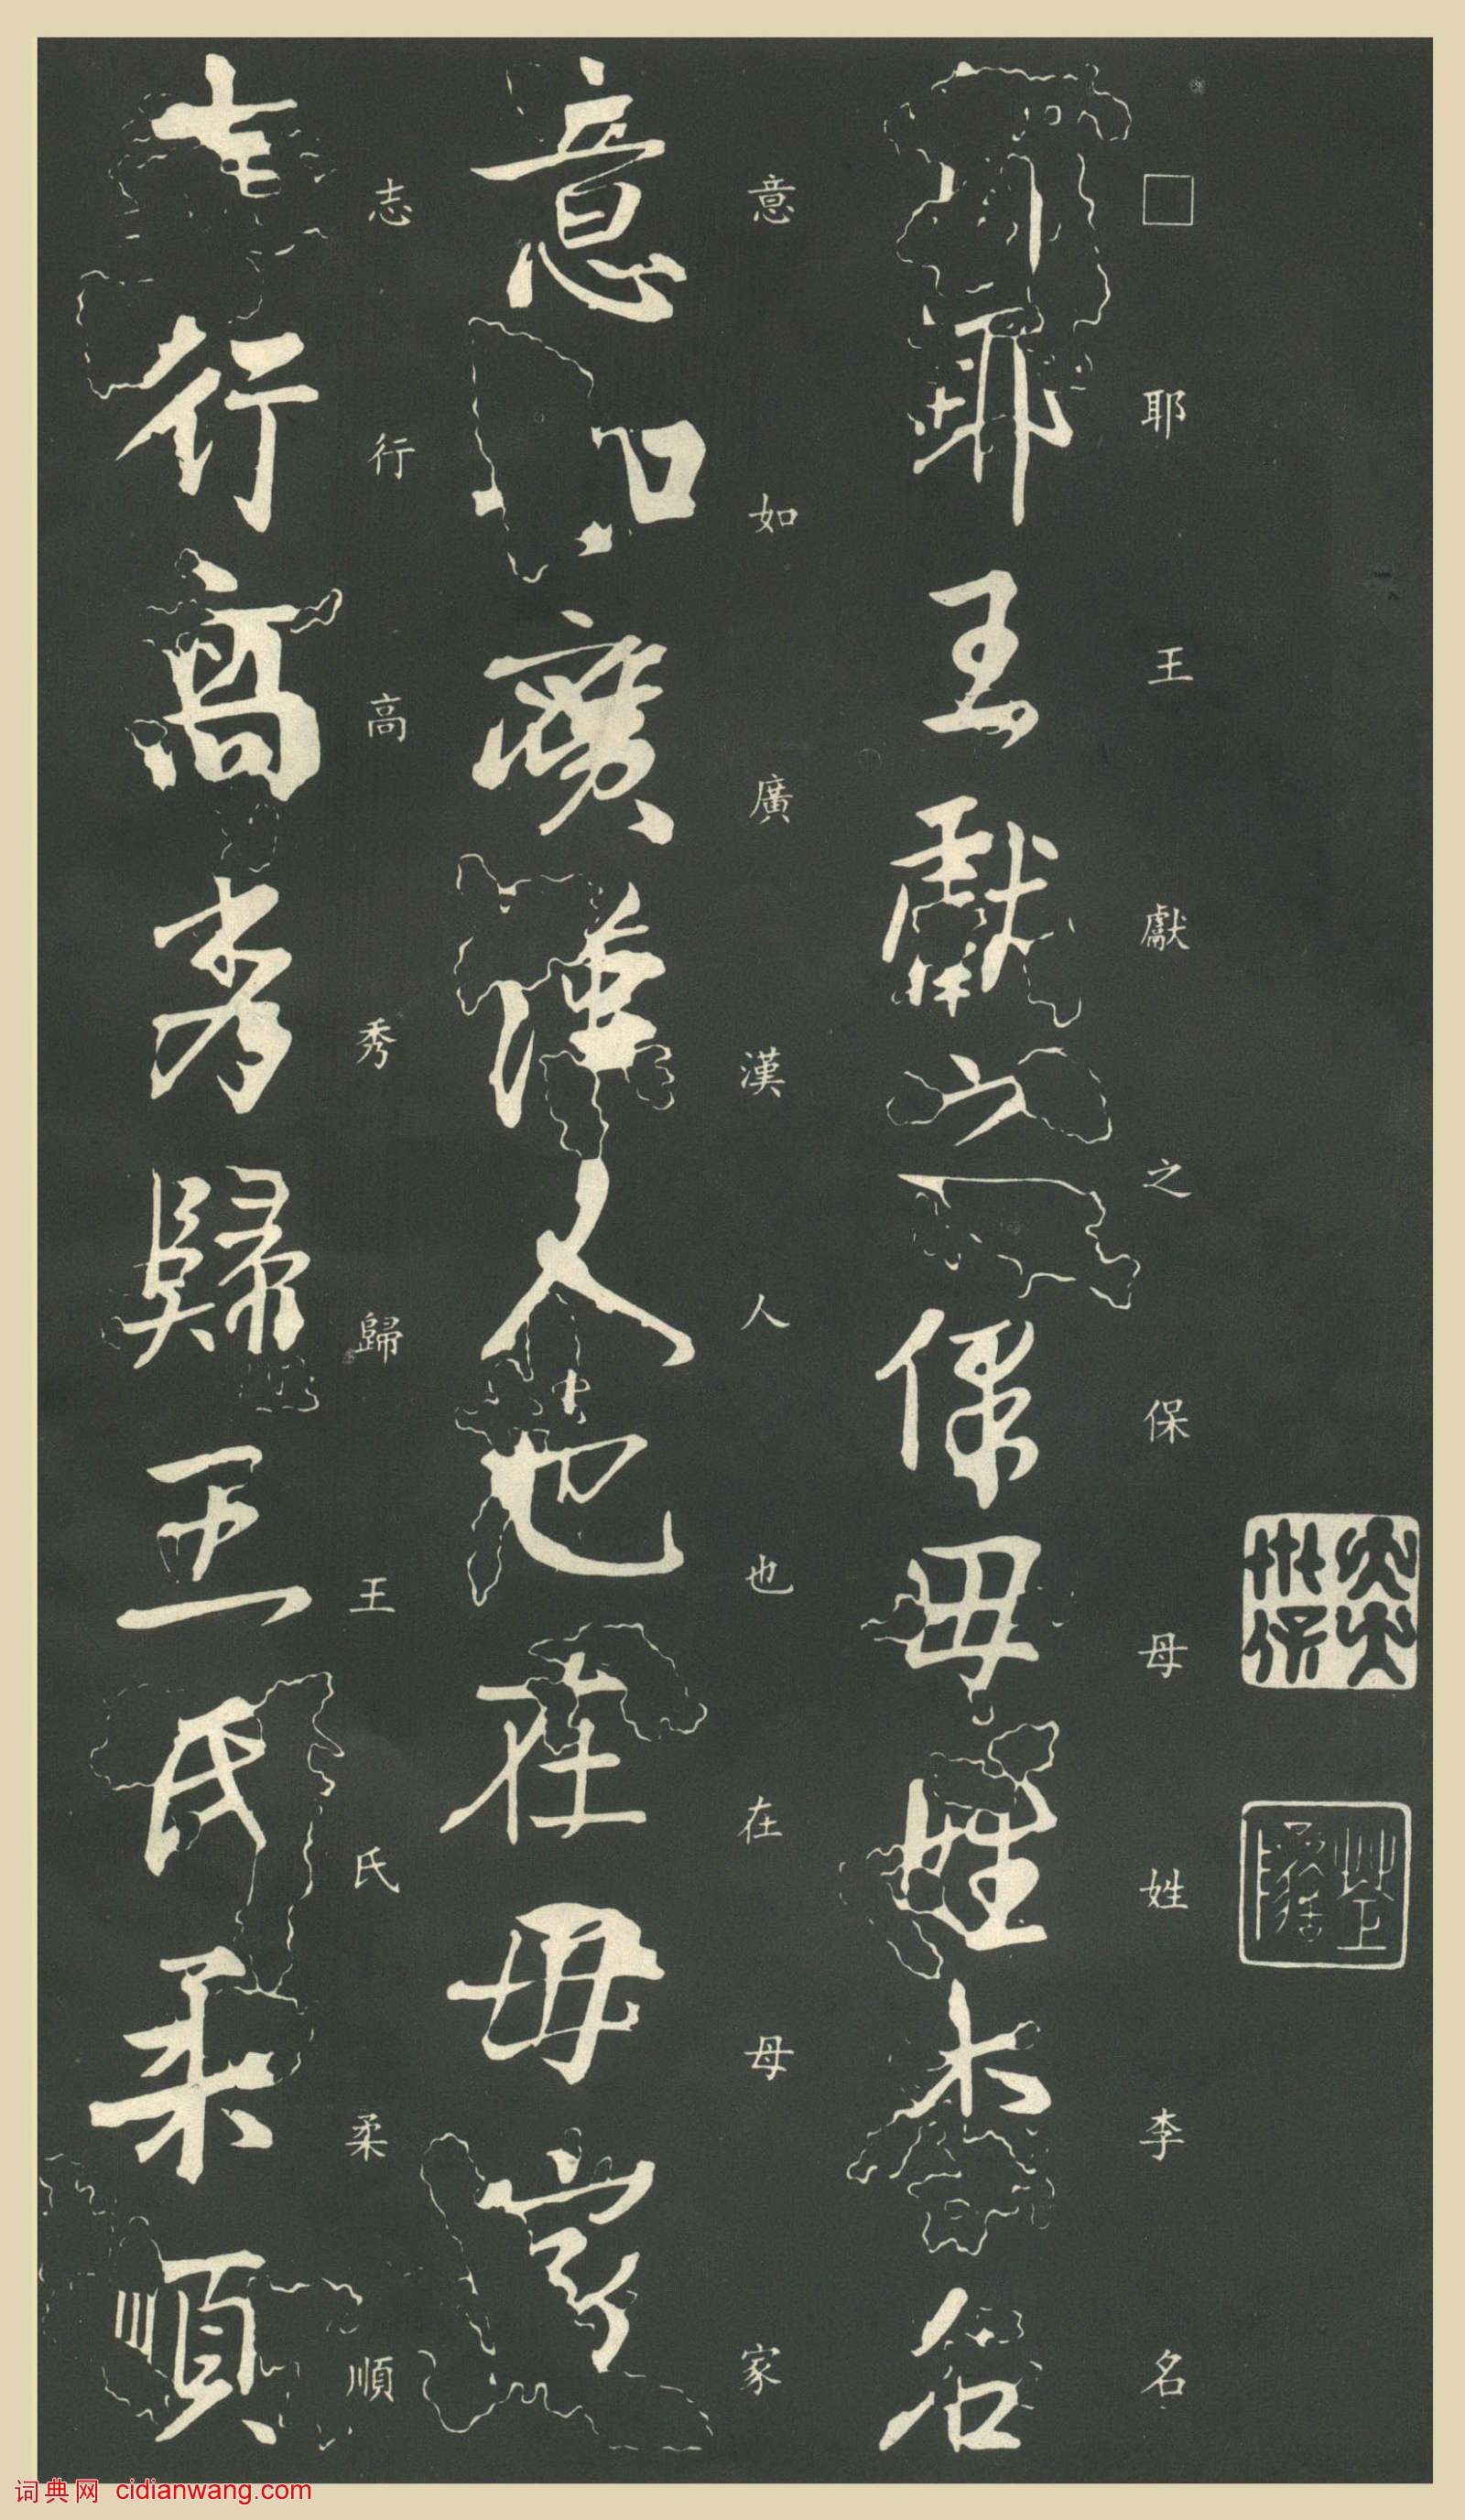 □耶王獻之保母姓李名
耶王獻之保母姓李名
意如廣漢人也在母家
意如廣漢人也在母家
志行高秀歸王氏柔順
志行高秀歸王氏柔順
词典网 cidianwang.com